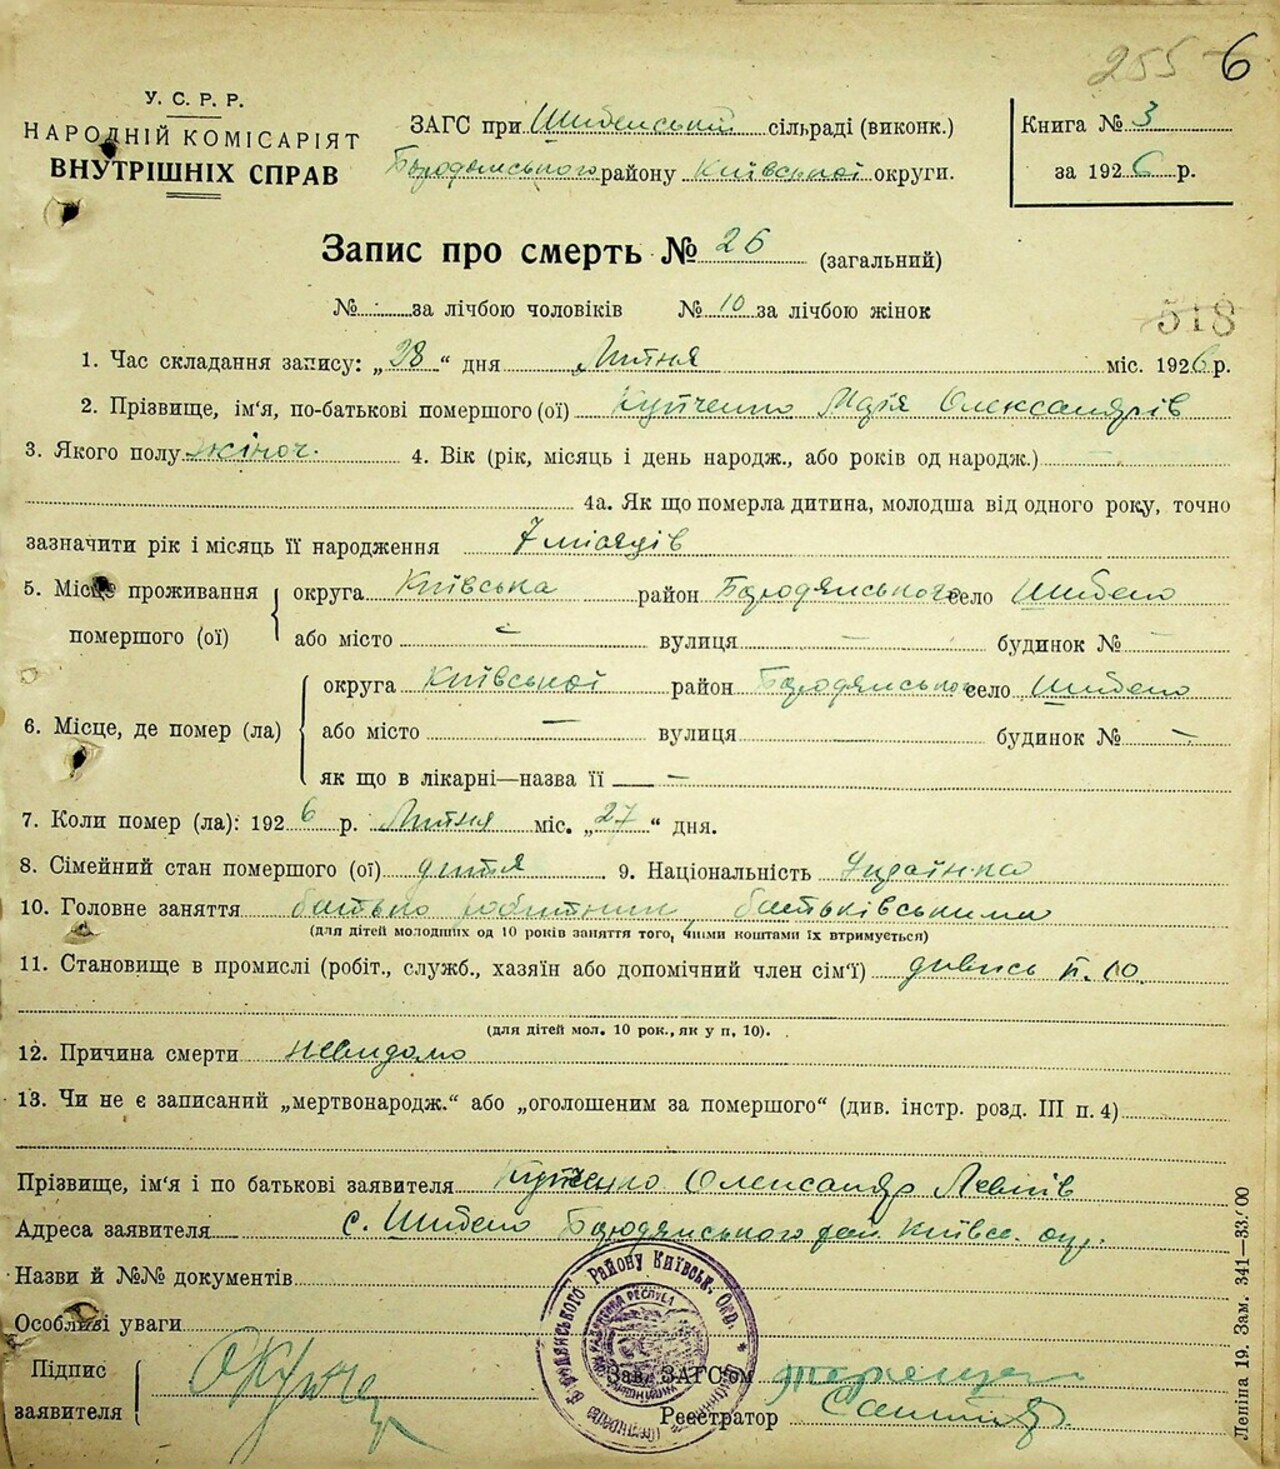 255 6
У. С. Р. Р.
НАРОДНІЙ КОМІСАРІЯТ
ВНУТРІШНІХ СПРАВ
ЗАГС при Шибенській сільраді (виконк.)
Бородянського району Київської округи.
Книга № 3
за 1926 р.
Запис про смерть № 26 (загальний)
№ за лічбою чоловіків № 10 за лічбою жінок
518
1. Час складання запису: „28“ дня Липня міс. 1926 р.
2. Прізвище, ім'я, по-батькові помершого (ої) Купченко Марія Олександрів
3. Якого полу жіноч. 4. Вік (рік, місяць і день народж., або років од народж.) —
4а. Як що померла дитина, молодша від одного року, точно
зазначити рік і місяць її народження 7 місяців
5. Місце проживання помершого (ої)
округа Київська район Бородянського село Шибено
або місто — вулиця — будинок № —
6. Місце, де помер (ла)
округа Київської район Бородянського село Шибено
або місто — вулиця — будинок № —
як що в лікарні—назва її —
7. Коли помер (ла): 1926 р. Липня міс. „27“ дня.
8. Сімейний стан помершого (ої) дитя 9. Національність Українка
10. Головне заняття батько робітник, батьківськими
(для дітей молодших од 10 років заняття того, чиїми коштами їх втримується)
11. Становище в промислі (робіт., служб., хазяїн або допомічний член сім'ї) дивись п. 10
(для дітей мол. 10 рок., як у п. 10).
12. Причина смерти невидомо
13. Чи не є записаний „мертвонародж.“ або „оголошеним за помершого“ (див. інстр. розд. III п. 4)
Прізвище, ім'я і по батькові заявителя Купченко Олександр Левків
Адреса заявителя с. Шибено Бородянського рай. Київсь. окр.
Назви й №№ документів
Особливі уваги
Підпис заявителя
Зав. ЗАГС'ом
Реєстратор
Районy Київськ. Окр.
Леніна 19. Зам. 341—33.000